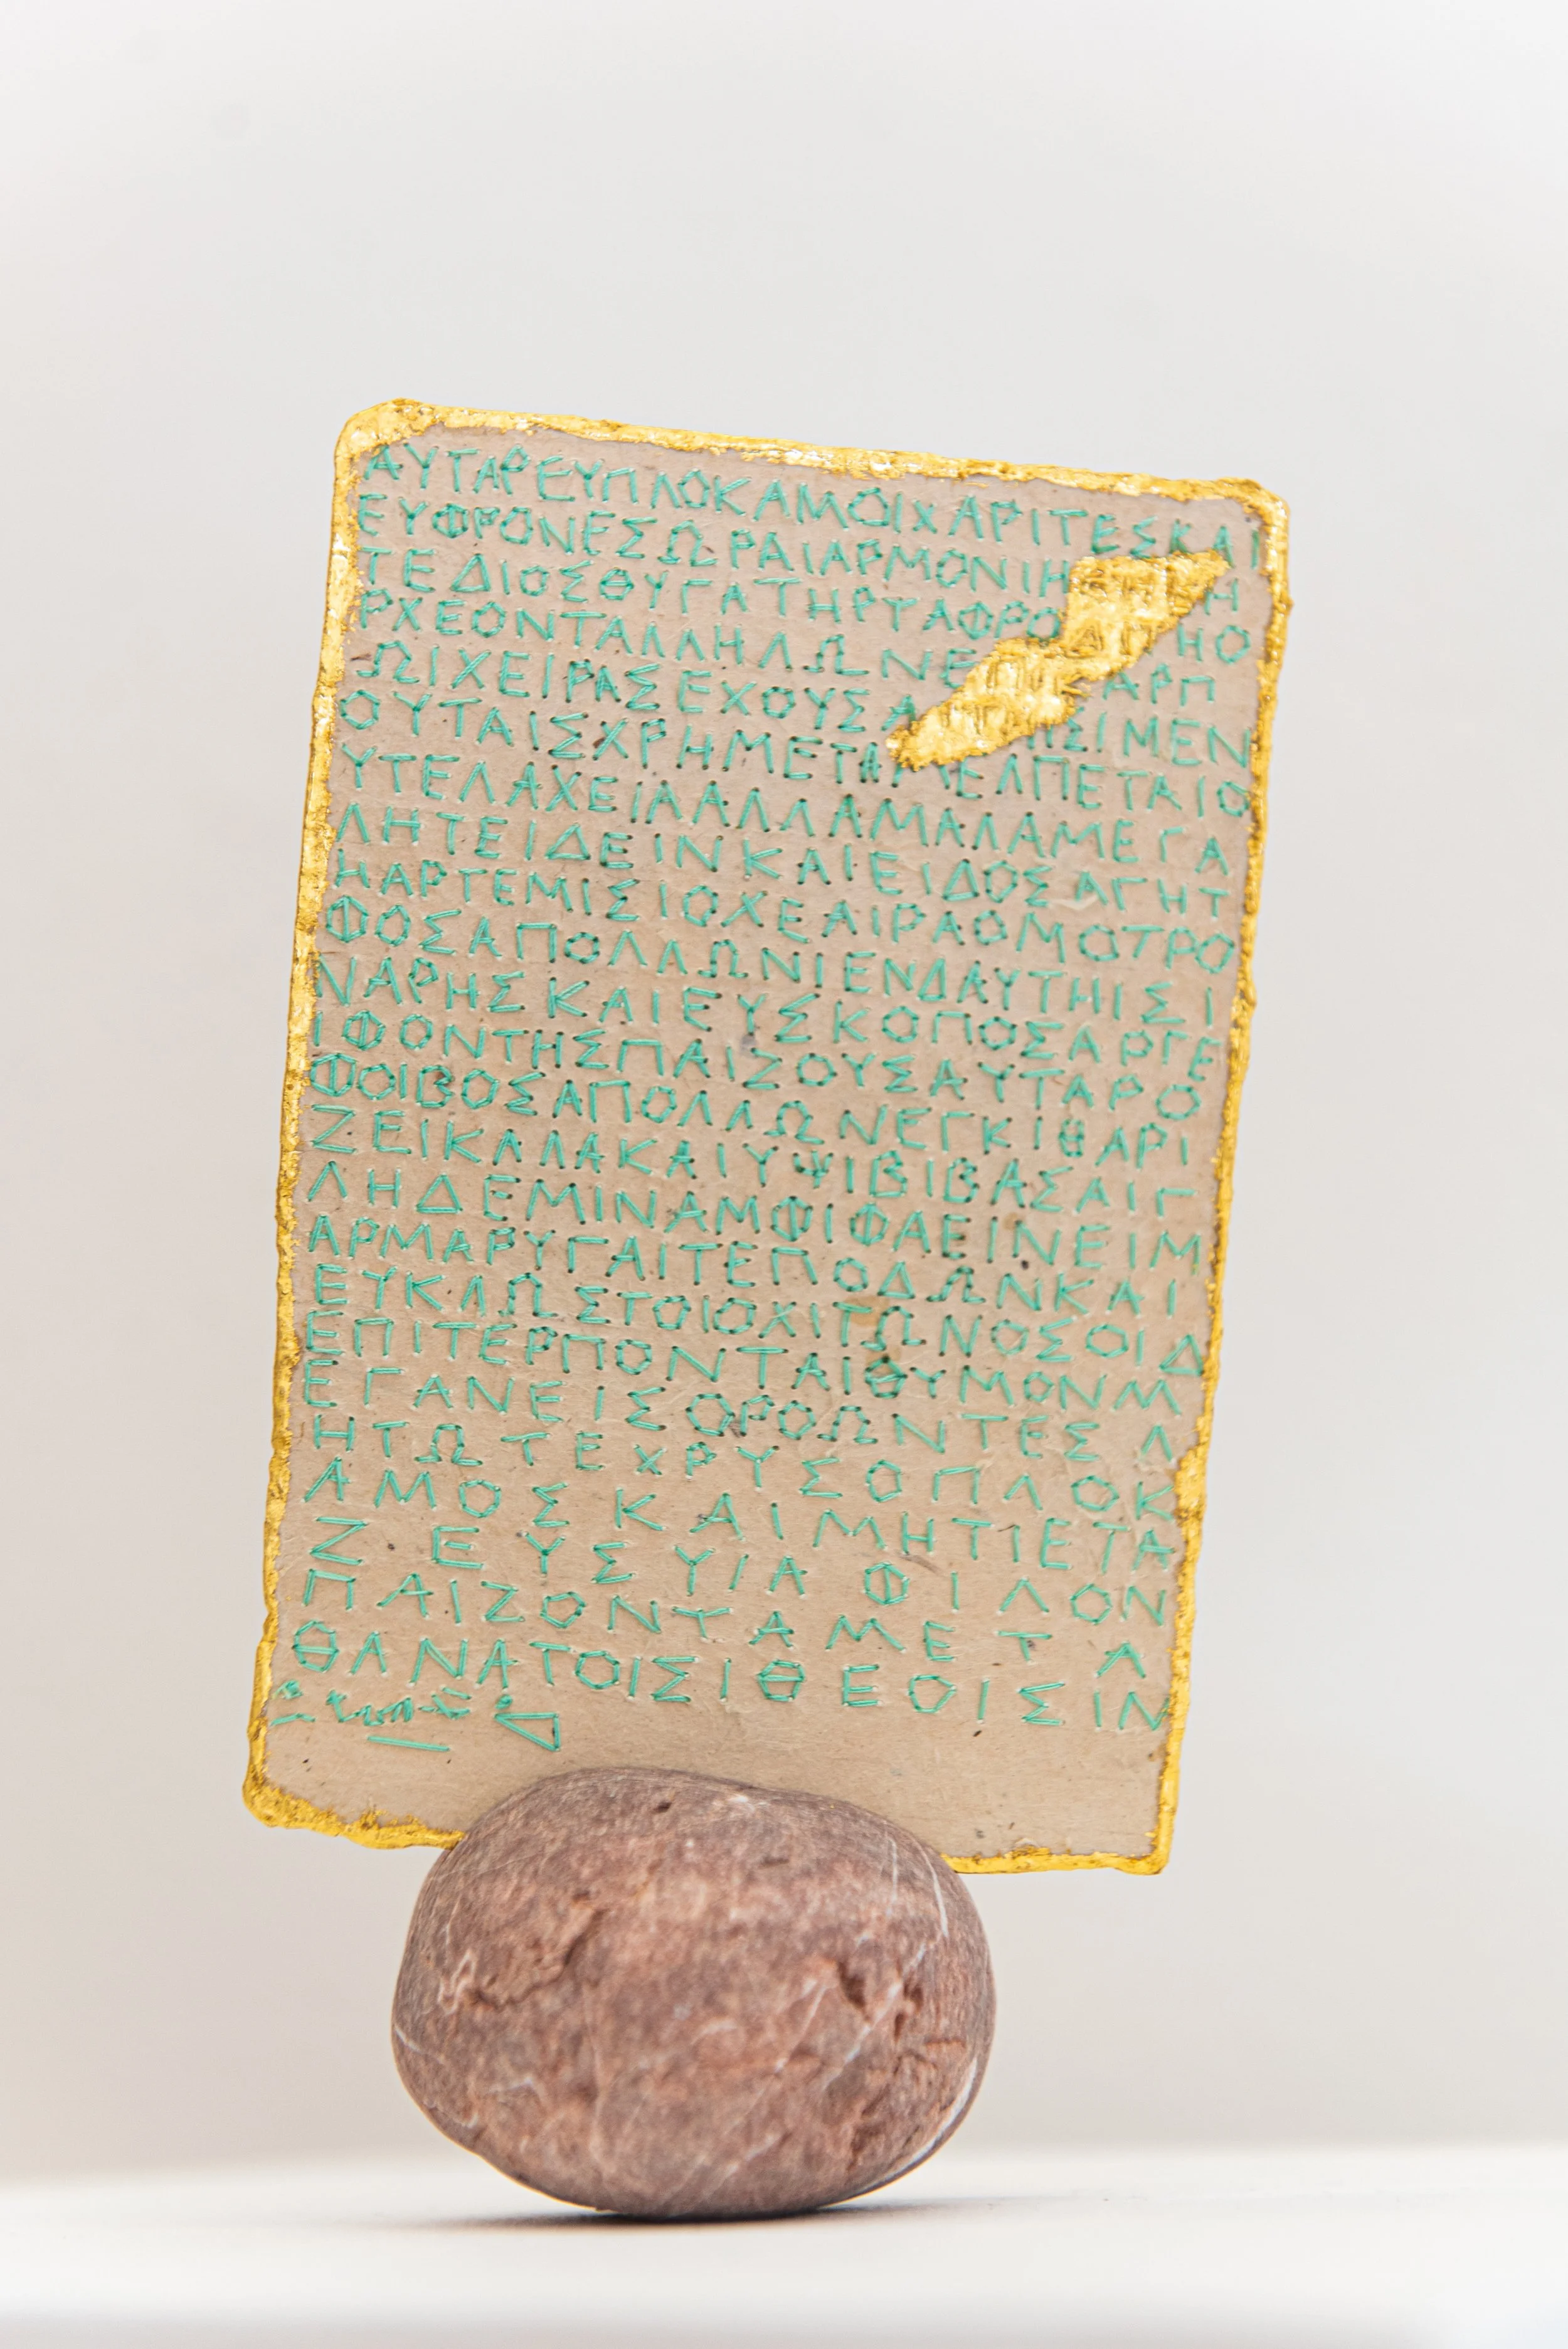 ΑΥΤΑΡΕΥΠΛΟΚΑΜΟΙΧΑΡΙΤΕΣΚΑΙ
ΕΥΦΡΟΝΕΣΩΡΑΙΑΡΜΟΝΙΗ Η
ΤΕΔΙΟΣΘΥΓΑΤΗΡΤΑΦΡΟΔΙΤΗΟ
ΡΧΕΟΝΤΑΛΛΗΛΩΝΕ ΑΡΠ
ΩΙΧΕΙΡΑΣΕΧΟΥΣΑ ΙΣΙΜΕΝ
ΟΥΤΑΙΣΧΡΗΜΕΤΑΜΕΛΠΕΤΑΙΟ
ΥΤΕΛΑΧΕΙΑΑΛΛΑΜΑΛΑΜΕΓΑ
ΛΗΤΕΙΔΕΙΝΚΑΙΕΙΔΟΣΑΓΗΤ
ΗΑΡΤΕΜΙΣΙΟΧΕΑΙΡΑΟΜΟΤΡΟ
ΦΟΣΑΠΟΛΛΩΝΙΕΝΔΑΥΤΗΙΣΙ
ΝΑΡΗΣΚΑΙΕΥΣΚΟΠΟΣΑΡΓΕ
ΙΦΟΝΤΗΣΠΑΙΖΟΥΣΑΥΤΑΡΟ
ΦΟΙΒΟΣΑΠΟΛΛΩΝΕΓΚΙΘΑΡΙ
ΖΕΙΚΑΛΑΚΑΙΥΨΙΒΙΒΑΣΑΙΓ
ΛΗΔΕΜΙΝΑΜΦΙΦΑΕΙΝΕΙΜ
ΑΡΜΑΡΥΓΑΙΤΕΠΟΔΩΝΚΑΙ
ΕΥΚΛΩΣΤΟΙΟΧΙΤΩΝΟΣΟΙΔ
ΕΠΙΤΕΡΠΟΝΤΑΙΘΥΜΟΝΜ
ΕΓΑΝΕΙΣΟΡΟΩΝΤΕΣΛ
ΗΤΩΤΕΧΡΥΣΟΠΛΟΚ
ΑΜΟΣΚΑΙΜΗΤΙΕΤΑ
ΖΕΥΣΥΙΑΦΙΛΟΝ
ΠΑΙΖΟΝΤΑΜΕΤΑ
ΘΑΝΑΤΟΙΣΙΘΕΟΙΣΙΝ